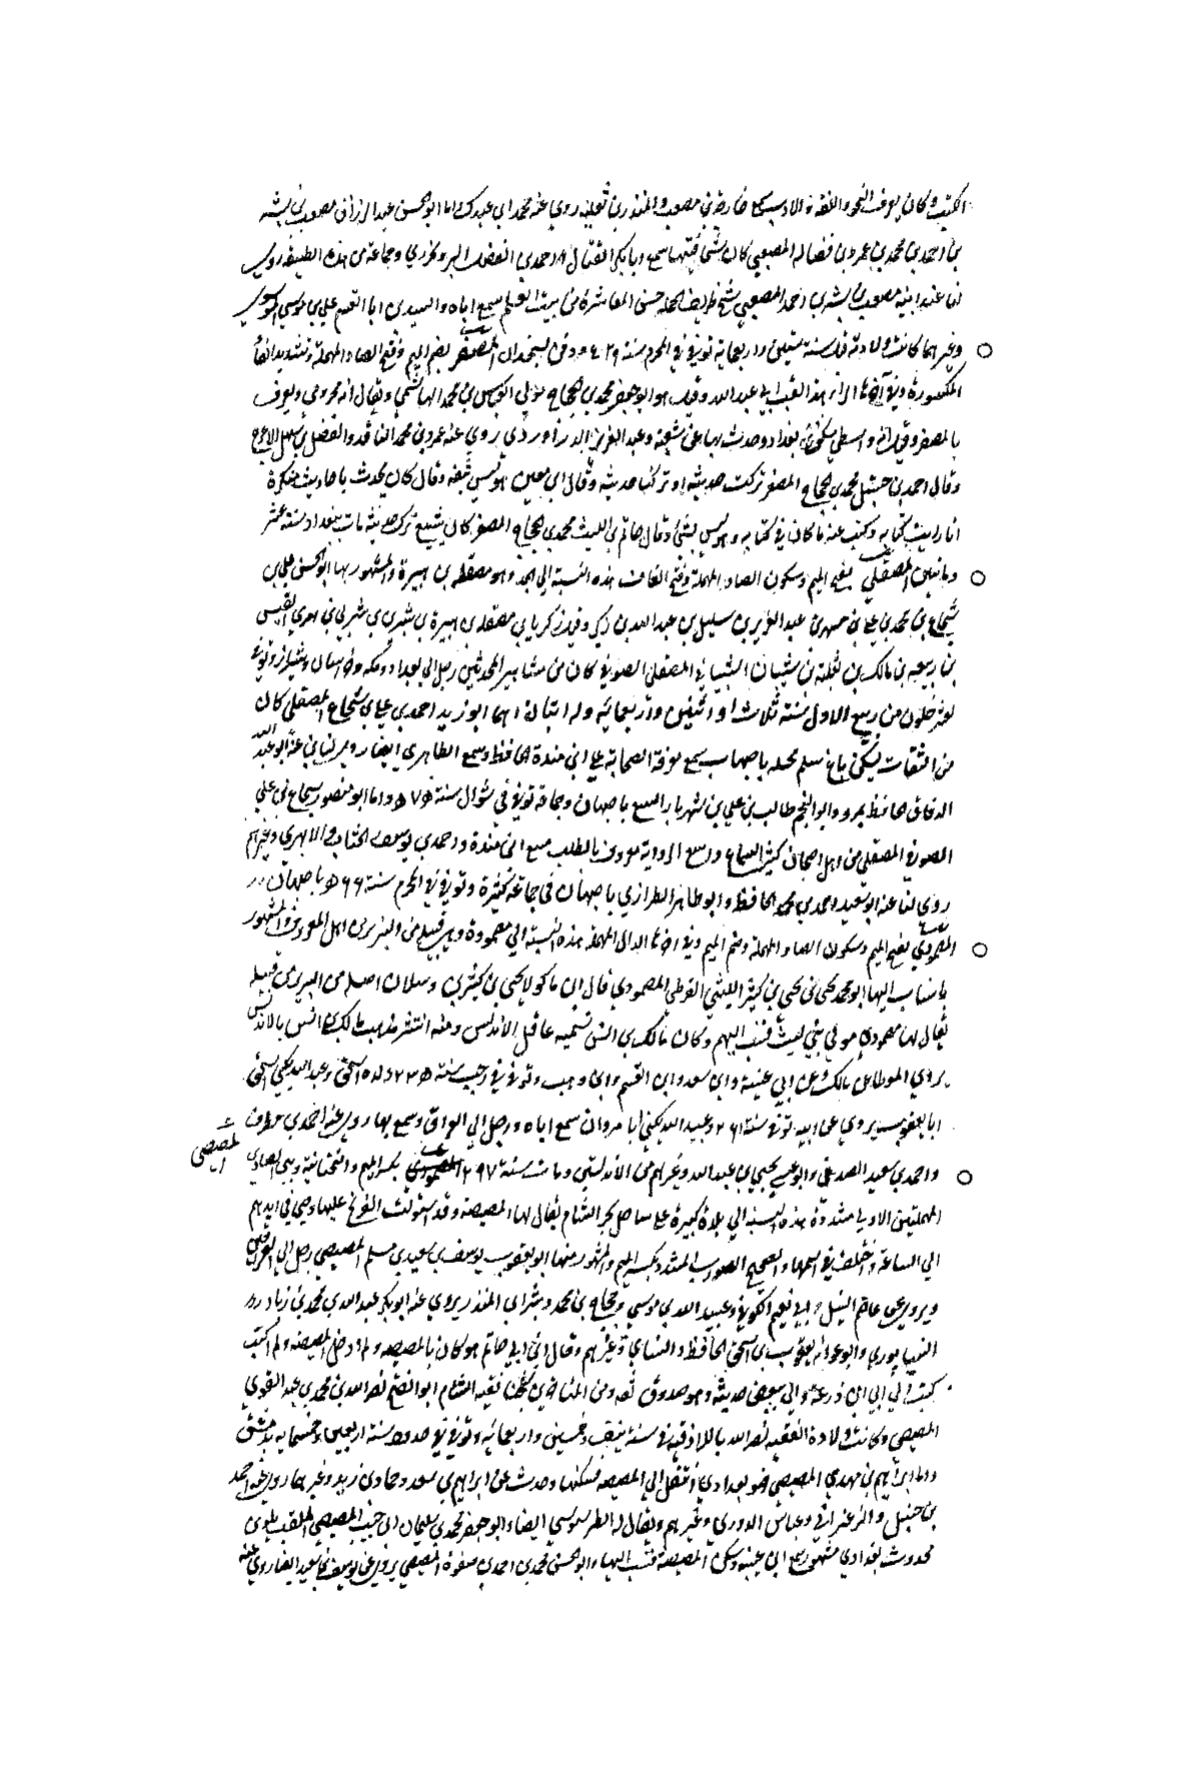 الكتب وكان يعرف النحو واللغة والادب سمع خارجة بن مصعب والمنذر بن ثعلبة روى عنه محمد بن عبدك واما ابو الحسن عبد الرزاق بن مصعب بن بشر
بن احمد بن محمد بن عمرو بن فضالة المصعبي كان شيخا فقيها سمع ابا بكر القفال واحمد بن الفضل البروجردي وجماعة من هذه الطبقة روى
لنا عنه ابنه مصعب بن بشر بن احمد المصعبي شيخ ظريف الجملة حسن المعاشرة من بيت العلم سمع اباه والسيد بن ابا القسم علي بن موسى الموسوي
وغيرهما كانت ولادته قبل سنة ستين واربعماية توفي في المحرم سنة ٥٢٩ ودفن بسنجدان المصفر بضم الميم وفتح الصاد المهملة وتشديد الفاء
المكسورة وفي آخرها الراء هذا لقب ابي عبد الله وقيل هو ابو جعفر محمد بن الحجاج مولى العباس بن محمد الهاشمي ويقال انه مخزومي ويعرف
بالمصفر وقيل انه واسطي سكن بغداد وحدث بها عن شعبة وعبد العزيز الدراوردي روى عنه عمرو بن محمد الناقد والفضل بن سهل الاعرج
وقال احمد بن حنبل محمد بن الحجاج المصفر تركت حديثه او تركنا حديثه وقال ابن معين هو ليس بثقة وقال كان يحدث باحاديث منكرة
انا رايت كتابه وكتبت عنه ما كان في كتابه وهو ليس بشئ وقال حاتم بن الليث محمد بن الحجاج المصفر كان يتشيع ترك حديثه مات ببغداد سنة عشر
ومايتين المصقلي بفتح الميم وسكون الصاد المهملة وفتح القاف هذه النسبة الى الجد وهو مصقلة بن هبيرة والمشهور بها ابو الحسن علي بن
شجاع بن محمد بن علي بن مسهر بن عبد العزيز بن سليل بن عبد الله بن زكير وقيل زكريا بن مصقلة بن هبيرة بن شبر بن يثربي بن امرئ القيس
بن ربيعة بن مالك بن ثعلبة بن شيبان الشيباني المصقلي الصوفي كان من مشاهير المحدثين رحل الى بغداد ومكة وخراسان وشيراز وتوفي
لعشر خلون من ربيع الاول سنة ثلاث او اثنين واربعمائة وله ابنان احدهما ابو زيد احمد بن علي بن شجاع المصقلي كان
من الثقات يسكن باغ سلم محلة باصبهان سمع معرفة الصحابة على ابن مندة الحافظ وسمع الطاهري ايضا روى لنا عنه ابو عبد الله
الدقاق الحافظ بمرو وابو النجم طالب بن علي بن شهريار البيع باصبهان وجماعة توفي في شوال سنة ٤٧٥ واما ابو منصور شجاع بن علي
الصوفي المصقلي من اهل اصبهان كثير السماع واسع الرواية معروف بالطلب سمع ابن مندة واحمد بن يوسف الخشاب والابهري وغيرهم
روى لنا عنه ابو سعيد احمد بن محمد الحافظ وابو طاهر الطرازي باصبهان في جماعة كثيرة وتوفي في المحرم سنة ٤٦٦ باصبهان
المصمودي بفتح الميم وسكون الصاد المهملة وضم الميم وفي اخرها الدال المهملة هذه النسبة الى مصمودة وهي قبيلة من البربر من اهل المغرب والمشهور
بانتساب اليها ابو محمد يحيى بن يحيى بن كثير الليثي القرطبي المصمودي قال ابن ماكولا يحيى بن كثير بن وسلاس اصله من البربر من قبيلة
يقال لها مصمودة مولى بني ليث فنسب اليهم وكان مالك بن انس تسميه عاقل الأندلس ومنه انتشر مذهب مالك بن انس بالاندلس
يروي الموطا عن مالك وعن ابن عيينة وابن سعد وابن القسم وابن وهب وتوفي في رجب سنة ٢٣٤ ولده اسحق وعبد الله يكنى اسحق
ابا يعقوب يروي عن ابيه توفي سنة ٢٦١ وعبيد الله يكنى ابا مروان سمع اباه ورحل الى العراق وسمع بها روى عنه احمد بن مطرف
واحمد بن سعيد الصدفي وابو عيسى يحيى بن عبد الله وغيرهم من الأندلسيين ومات سنة ٢٩٧ المصمودي بكسر الميم والتحتانية وبين الصادين
المصيصي
المهملتين الاولى مشددة هذه النسبة الى بلدة كبيرة على ساحل بحر الشام يقال لها المصيصة وقد استولت الفرنج عليها وهي في ايديهم
الى الساعة واختلف في اسمها والصحيح الصواب المشدد بكسر الميم والمشهور منها ابو يعقوب يوسف بن سعيد بن مسلم المصيصي رحل الى العراقين
ويروي عن عاصم النبيل وابي نعيم الكوفي وعبيد الله بن موسى وحجاج بن محمد وبشر بن المنذر يروي عنه ابو بكر عبد الله بن محمد بن زياد
النيسابوري وابو عوانة يعقوب بن اسحق الحافظ والنسائي وغيرهم وقال ابن ابي حاتم هو كان بالمصيصة ولم ادخل المصيصة ولم اكتب
كتب الي الى ابي زرعة والي ببعض حديثه وهو صدوق ثقة ومن المتاخرين شيخنا فقيه الشام ابو الفتح نصر الله بن محمد بن عبد القوي
المصيصي وكانت ولادة الفقيه نصر الله باللاذقية في سنة نيف وخمسين واربعمائة وتوفي في حدود سنة اربعين وخمسماية بدمشق
واما ابراهيم بن مهدي المصيصي فهو بغدادي انتقل الى المصيصة فسكنها وحدث عن ابراهيم بن سعد وحماد بن زيد وغيرهما روى عنه احمد
بن حنبل والزعفراني وعباس الدوري وغيرهم ويقال له الطرسوسي ايضا وابو جعفر محمد بن سليمان بن حبيب المصيصي الملقب بلوين
محدث بغدادي مشهور سمع ابن عيينة وسكن المصيصة فنسب اليها وابو الحسن محمد بن احمد بن صفوة المصيصي يروي عن يوسف بن سعيد ايضا روى عنه